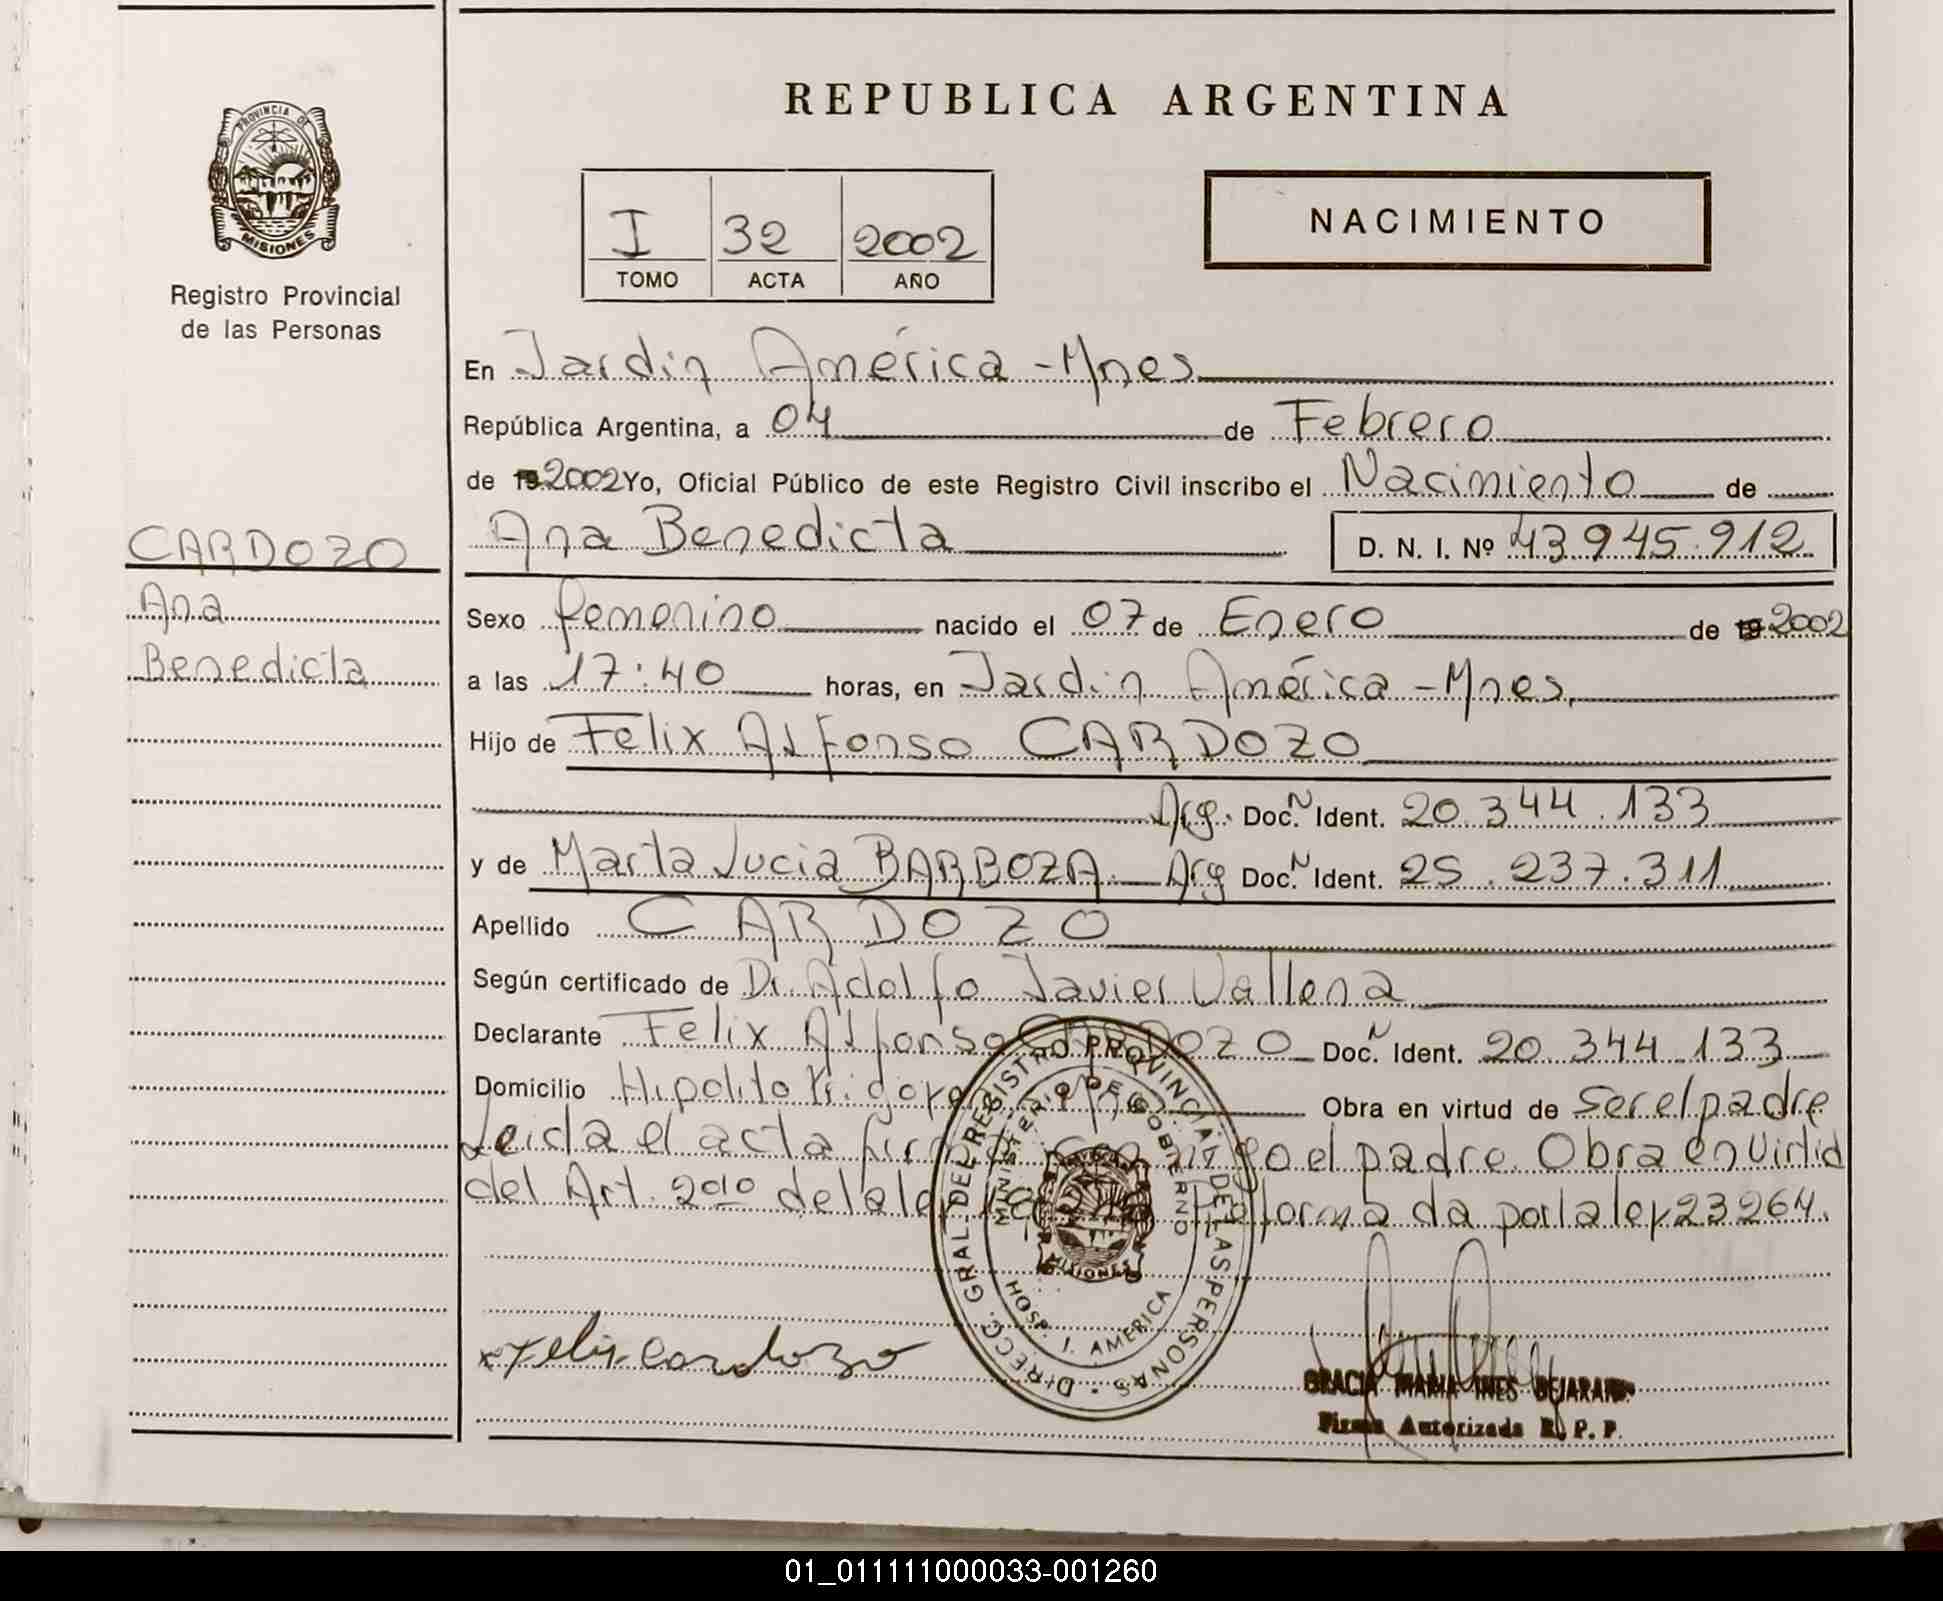 REPUBLICA ARGENTINA
PROVINCIA DE
MISIONES
Registro Provincial
de las Personas
I 32 2002
TOMO ACTA AÑO
NACIMIENTO
En Jardin América - Mnes
República Argentina, a 04 de Febrero
de 19 2002 Yo, Oficial Público de este Registro Civil inscribo el Nacimiento de
CARDOZO
Ana
Benedicta
Ana Benedicta D. N. I. Nº 43.945.912
Sexo femenino nacido el 07 de Enero de 19 2002
a las 17:40 horas, en Jardin América - Mnes,
Hijo de Felix Alfonso CARDOZO
Arg. Doc. N Ident. 20.344.133
y de Marta Lucia BARBOZA. Arg Doc. N Ident. 25.237.311
Apellido CARDOZO
Según certificado de Dr. Adolfo Javier Vallena
Declarante Felix Alfonso CARDOZO Doc. N Ident. 20.344.133
Domicilio Hipolito Obra en virtud de Ser el padre
Leida el acta el padre. Obra en Virtid
del Art. 2010 de la ley por la ley 23264.
DIRECC. GRAL. DEL REGISTRO PROVINCIAL DE LAS PERSONAS
MINISTERIO DE GOBIERNO
MISIONES
HOSP. J. AMERICA
x Felix Cardozo
GRACIA MARIA INES BEJARANO
Firma Autorizada R. P. P.
01_011111000033-001260